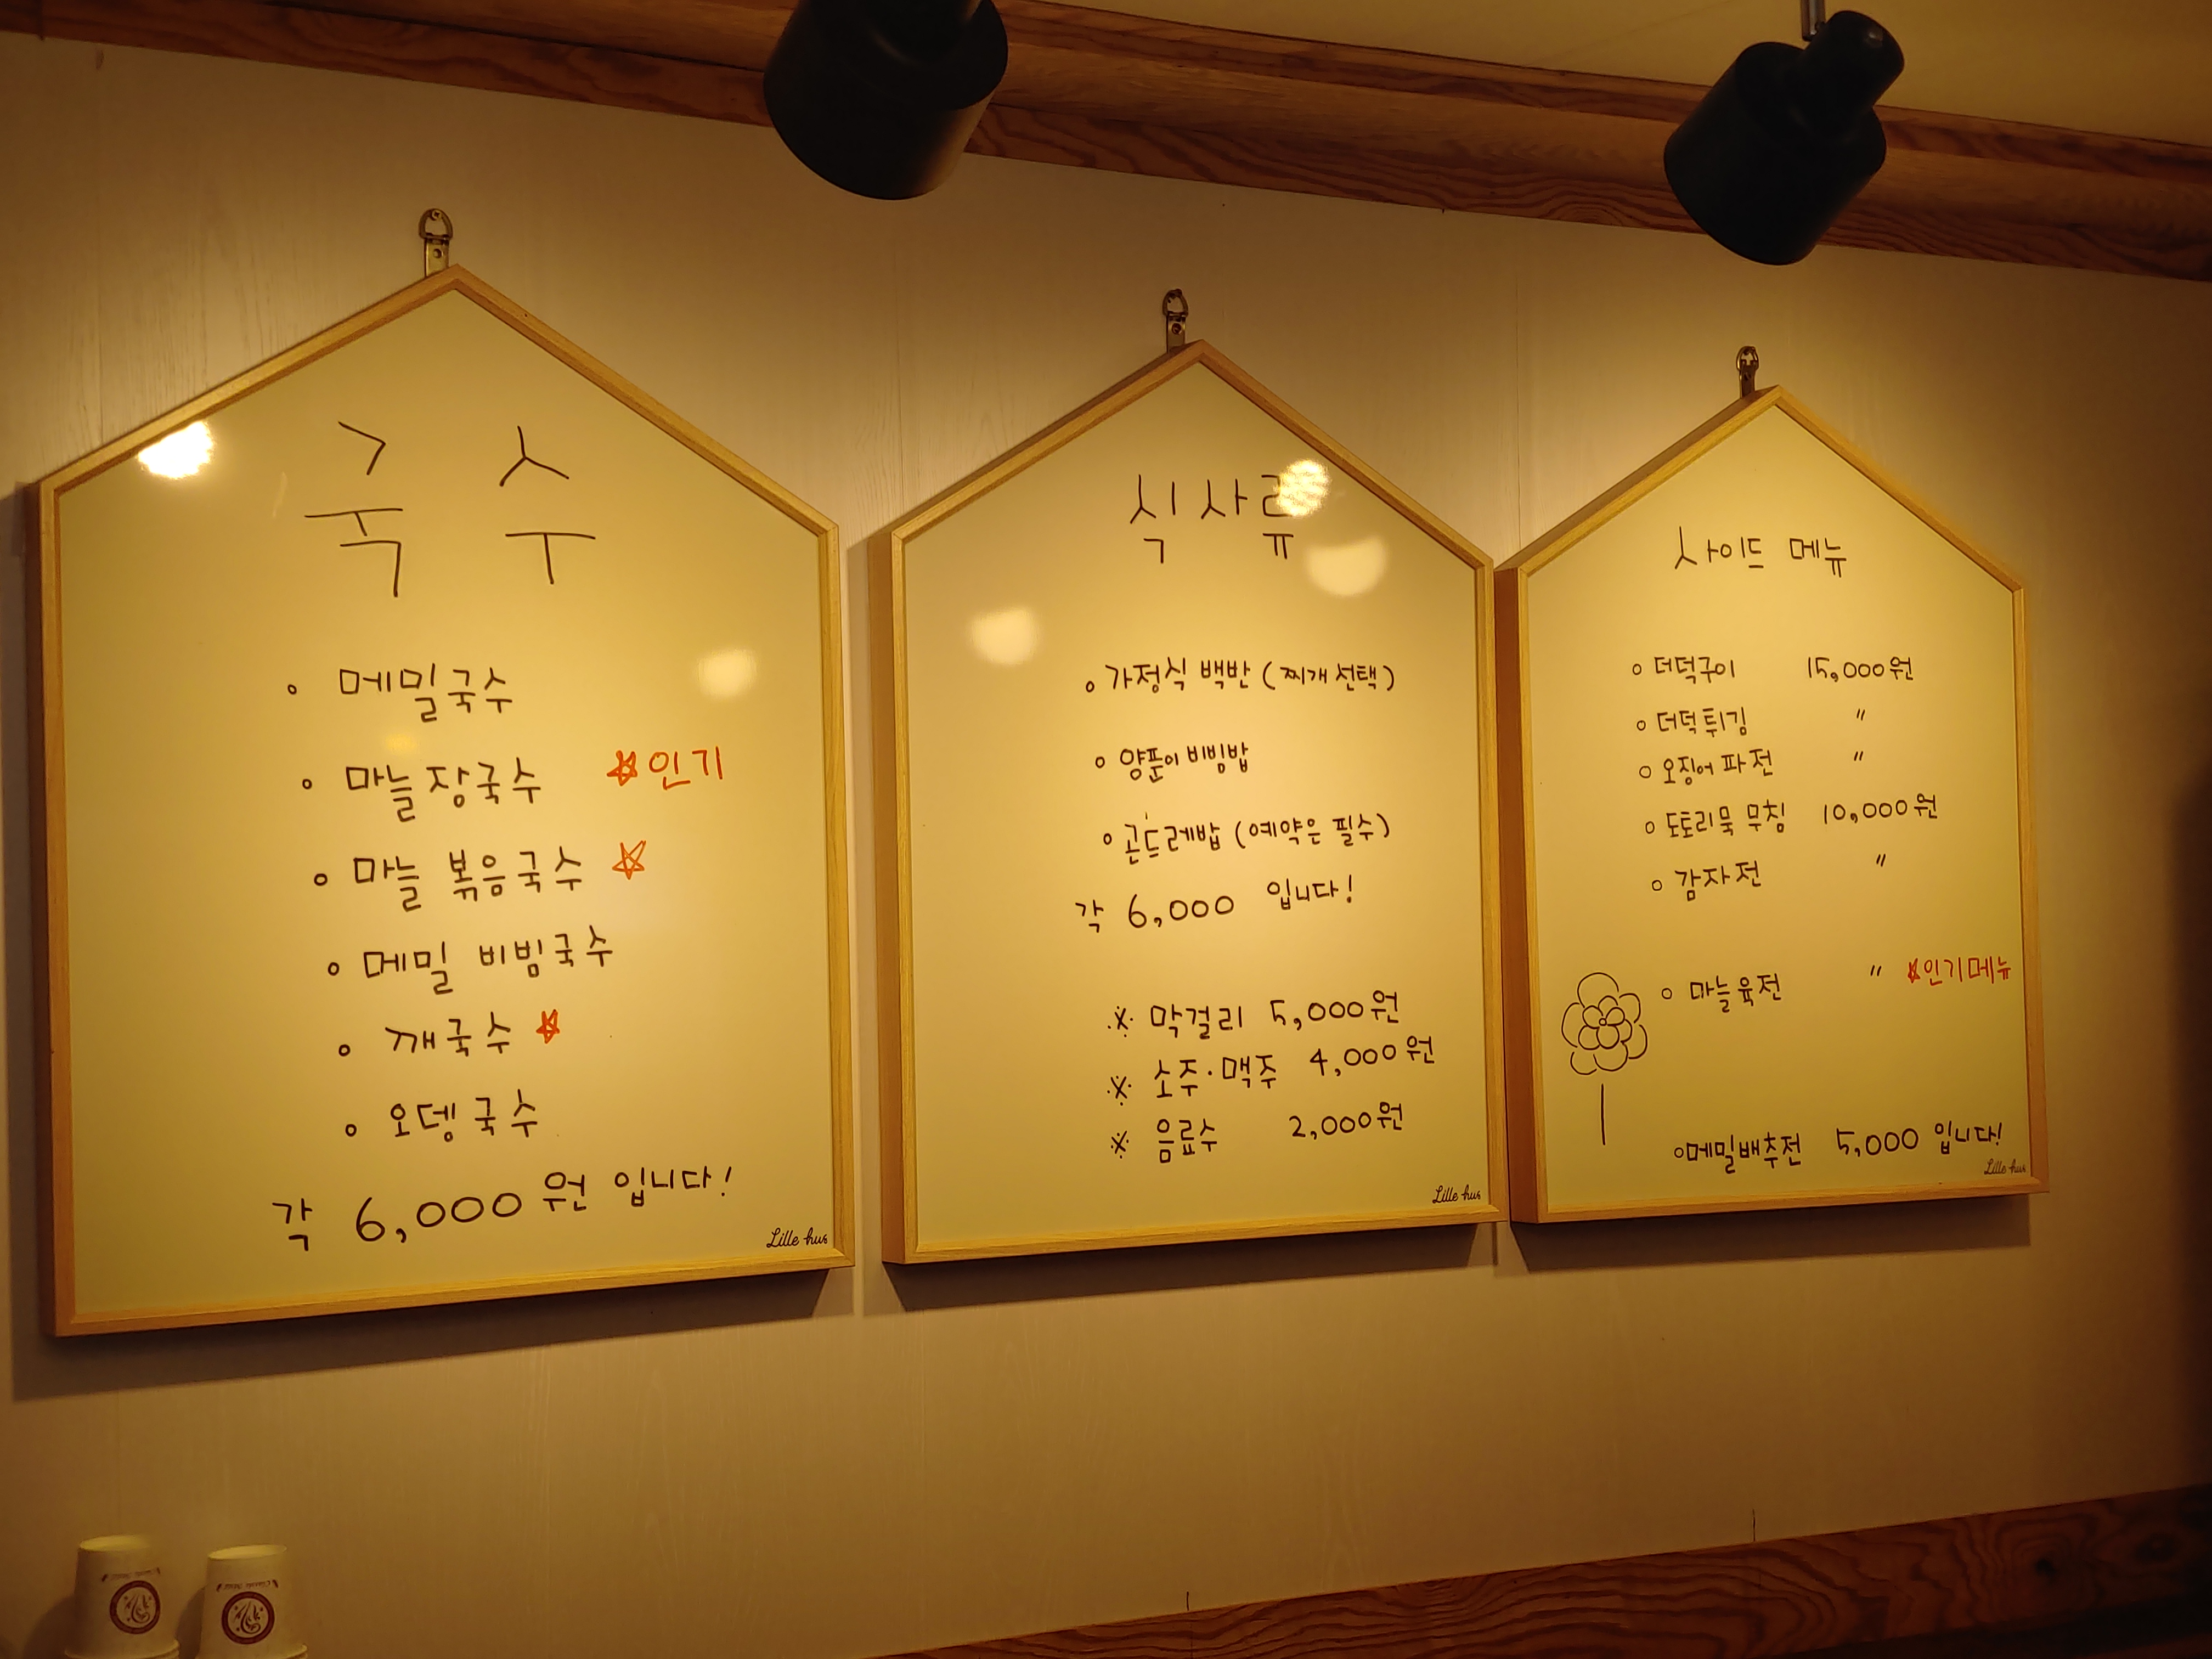 국 수
◦ 메밀국수
◦ 마늘 장국수 ☆인기
◦ 마늘 볶음국수 ☆
◦ 메밀 비빔국수
◦ 깨국수 ☆
◦ 오뎅국수
각 6,000원 입니다!
Lille hus
식사류
◦ 가정식 백반 (찌개 선택)
◦ 양푼이 비빔밥
◦ 곤드레밥 (예약은 필수)
각 6,000 입니다!
※ 막걸리 5,000원
※ 소주·맥주 4,000원
※ 음료수 2,000원
Lille hus
사이드 메뉴
◦ 더덕구이 15,000원
◦ 더덕튀김 〃
◦ 오징어 파전 〃
◦ 도토리묵 무침 10,000원
◦ 감자전 〃
◦ 마늘육전 〃 ☆인기메뉴
◦메밀배추전 5,000 입니다!
Lille hus